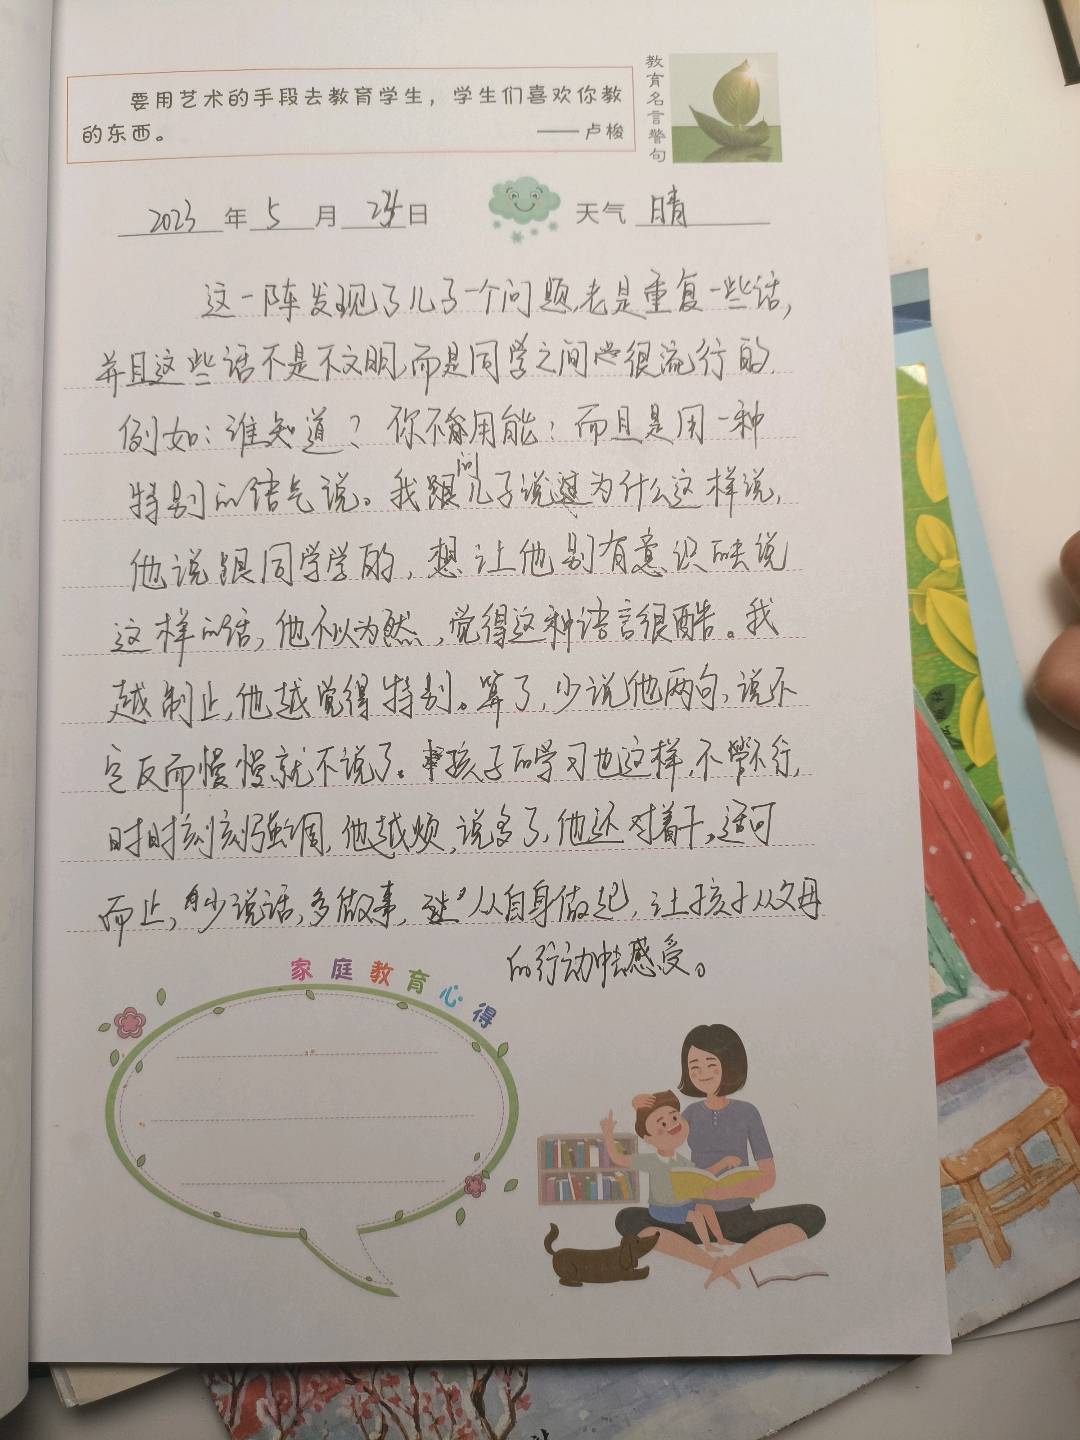 要用艺术的手段去教育学生，学生们喜欢你教
的东西。
——卢梭
教育名言警句
2023年5月24日 天气 晴
这一阵发现了儿子一个问题,老是重复一些话,
并且这些话不是不文明,而是同学之间很流行的.
例如:谁知道？你不能用能；而且是用一种
特别的语气说。我问儿子说为什么这样说,
他说跟同学学的,想让他别有意识的去说
这样的话,他不以为然,觉得这种语言很酷。我
越制止,他越觉得特别。算了,少说他两句,说不
定反而慢慢就不说了。孩子的学习也这样,不管不行,
时时刻刻强调,他越烦,说多了,他还对着干。适可
而止,少说话,多做事,从自身做起,让孩子从父母
的行动中去感受。
家庭教育心得